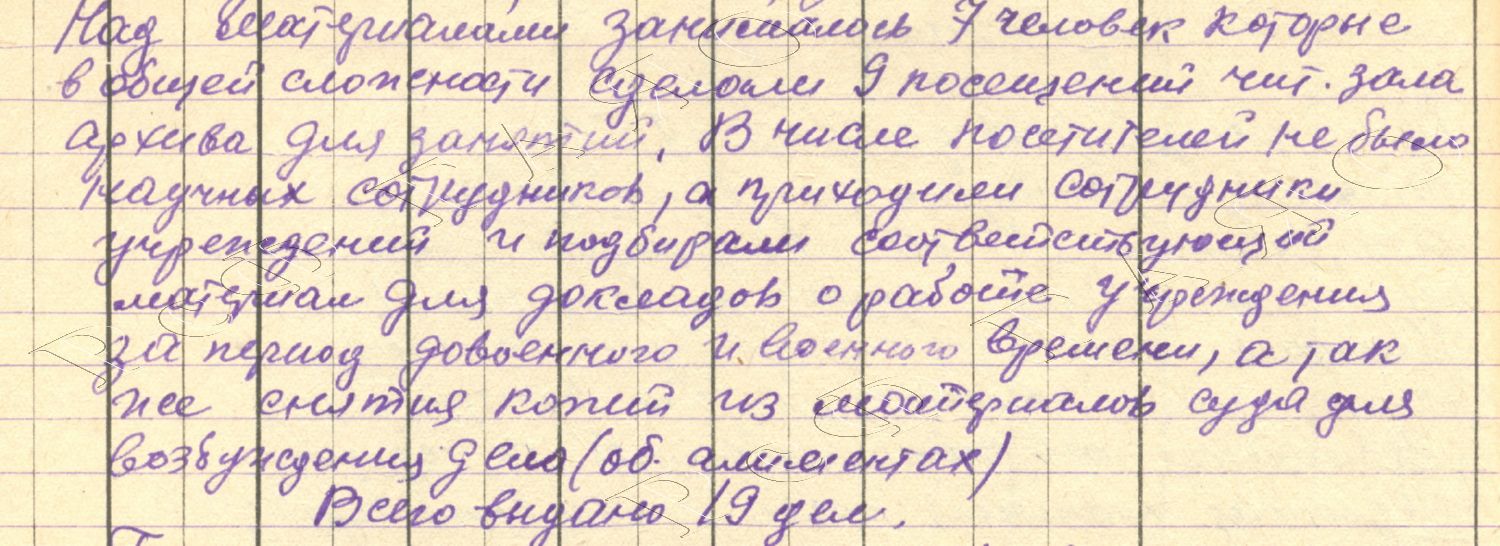 Над материалами занималось 7 человек которые
в общей сложности сделали 9 посещений чит. зала
архива для занятий. В числе посетителей не было
научных сотрудников, а приходили сотрудники
учреждений и подбирали соответствующий
материал для докладов о работе учреждения
за период довоенного и военного времени, а так
же снятия копий из материалов суда для
возбуждения дела (об. алиментах)
Всего выдано 19 дел.